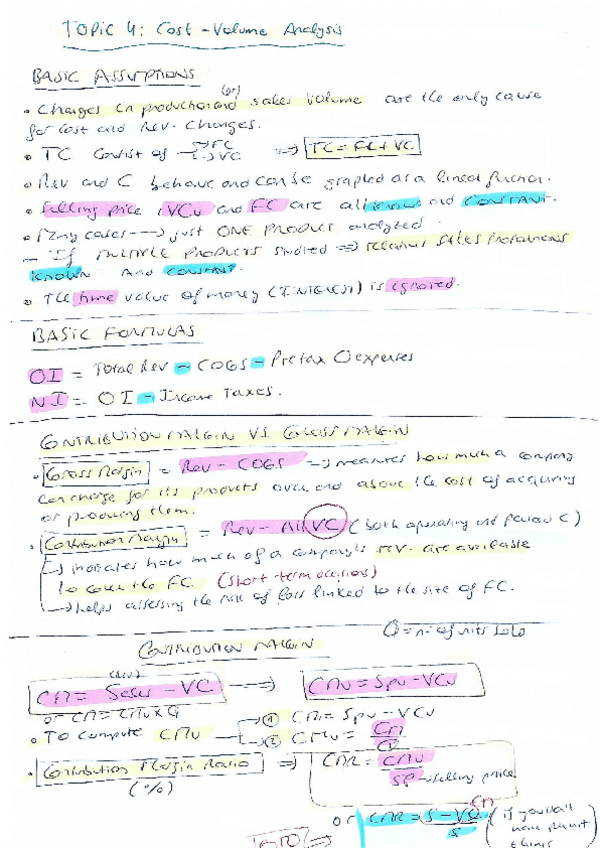 TOPIC 4: Cost-Volume Analysis
BASIC ASSUMPTIONS
(or)
• Changes in production and sales volume are the only cause
for cost and Rev. Changes.
• TC consist of → FC → VC ⇒ TC = FC + VC
• Rev and C behave and can be graphed as a linear function.
• Selling price, VCu and FC are all known and CONSTANT.
• Many cases --→ just ONE PRODUCT analyzed.
- If MULTIPLE PRODUCTS studied ⇒ relative sales proportions
KNOWN AND CONSTANT.
• The time value of money (INTEREST) is ignored.
BASIC FORMULAS
OI = Total Rev - COGS - Pretax O expenses
NI = OI - Income Taxes.
CONTRIBUTION MARGIN VS GROSS MARGIN
• Gross Margin = Rev - COGS → measures how much a company
can charge for its products over and above the cost of acquiring
or producing them.
• Contribution Margin = Rev - All VC (both operating and Period C)
→ indicates how much of a company's rev. are available
to cover the FC (short-term decisions)
→ helps assessing the risk of loss linked to the site of FC.
Q = n° of units sold
CONTRIBUTION MARGIN
CM = Sales - VC → CMu = Spu - VCu
or CM = CMu x Q
• To compute CMu → ① CM = Spu - VCu
→ ② CMu = CM/Q
• Contribution Margin Ratio ⇒ CMR = CMu/SP → selling price
(%)
or CMR = S - VC/S CM (if you don't
have per unit
things
⇒